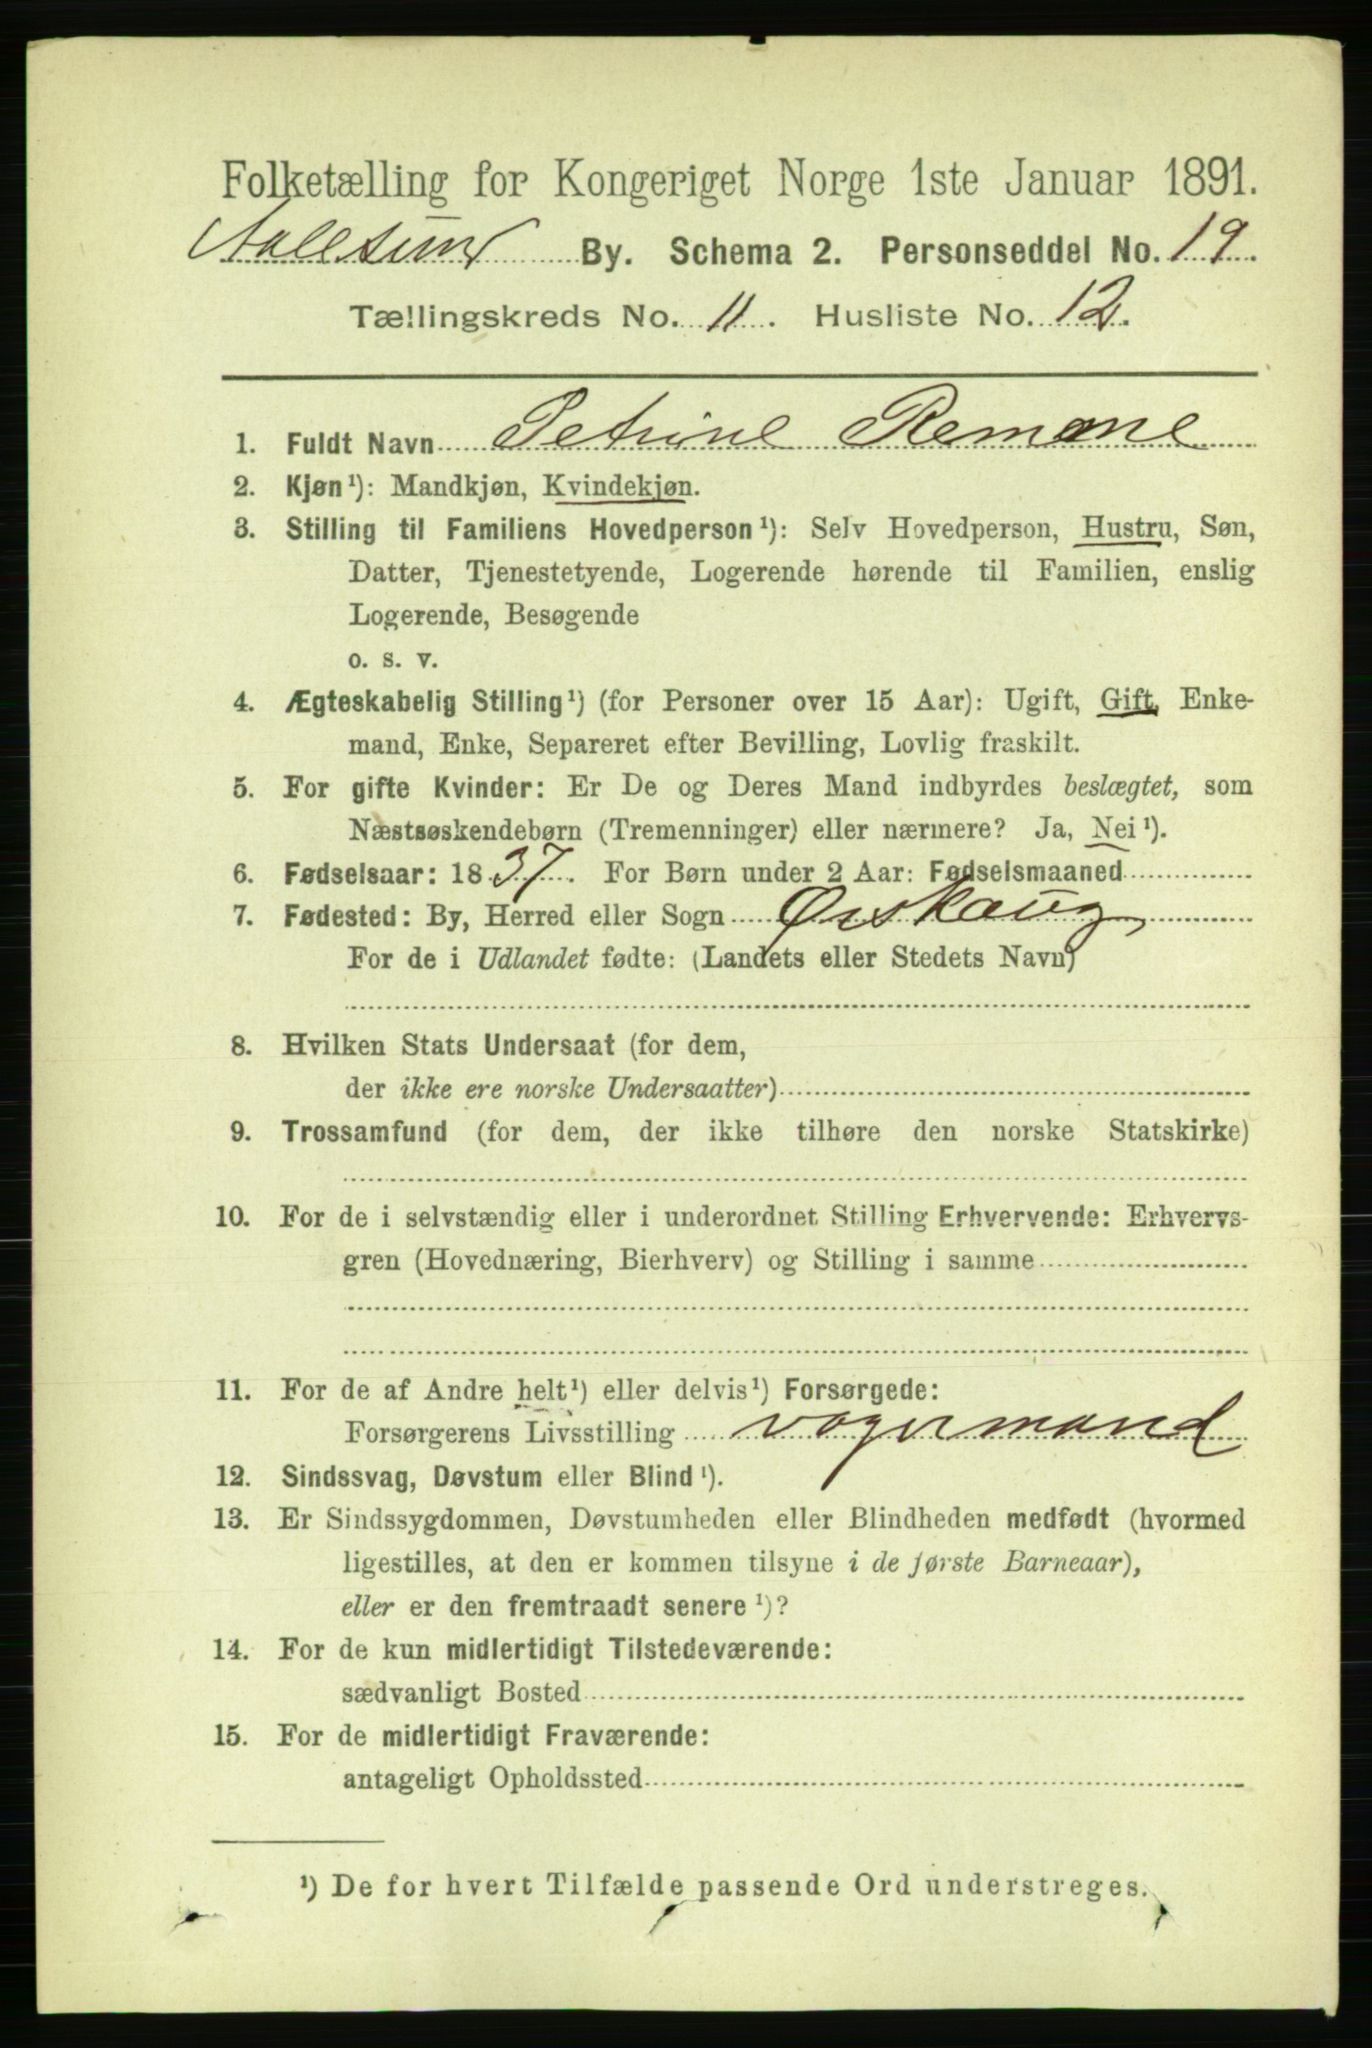 Folketælling for Kongeriget Norge 1ste Januar 1891.
Aalesund By. Schema 2. Personseddel No. 19.
Tællingskreds No. 11. Husliste No. 12.
1. Fuldt Navn Petrine Remøne
2. Kjøn¹): Mandkjøn, Kvindekjøn.
3. Stilling til Familiens Hovedperson¹): Selv Hovedperson, Hustru, Søn,
Datter, Tjenestetyende, Logerende hørende til Familien, enslig
Logerende, Besøgende
o. s. v.
4. Ægteskabelig Stilling¹) (for Personer over 15 Aar): Ugift, Gift, Enke-
mand, Enke, Separeret efter Bevilling, Lovlig fraskilt.
5. For gifte Kvinder: Er De og Deres Mand indbyrdes beslægtet, som
Næstsøskendebørn (Tremenninger) eller nærmere? Ja, Nei¹).
6. Fødselsaar: 1837. For Børn under 2 Aar: Fødselsmaaned
7. Fødested: By, Herred eller Sogn Ørskaug
For de i Udlandet fødte: (Landets eller Stedets Navn)
8. Hvilken Stats Undersaat (for dem,
der ikke ere norske Undersaatter)
9. Trossamfund (for dem, der ikke tilhøre den norske Statskirke)
10. For de i selvstændig eller i underordnet Stilling Erhvervende: Erhvervs-
gren (Hovednæring, Bierhverv) og Stilling i samme
11. For de af Andre helt¹) eller delvis¹) Forsørgede:
Forsørgerens Livsstilling vogermand
12. Sindssvag, Døvstum eller Blind¹).
13. Er Sindssygdommen, Døvstumheden eller Blindheden medfødt (hvormed
ligestilles, at den er kommen tilsyne i de første Barneaar),
eller er den fremtraadt senere¹)?
14. For de kun midlertidigt Tilstedeværende:
sædvanligt Bosted
15. For de midlertidigt Fraværende:
antageligt Opholdssted
¹) De for hvert Tilfælde passende Ord understreges.